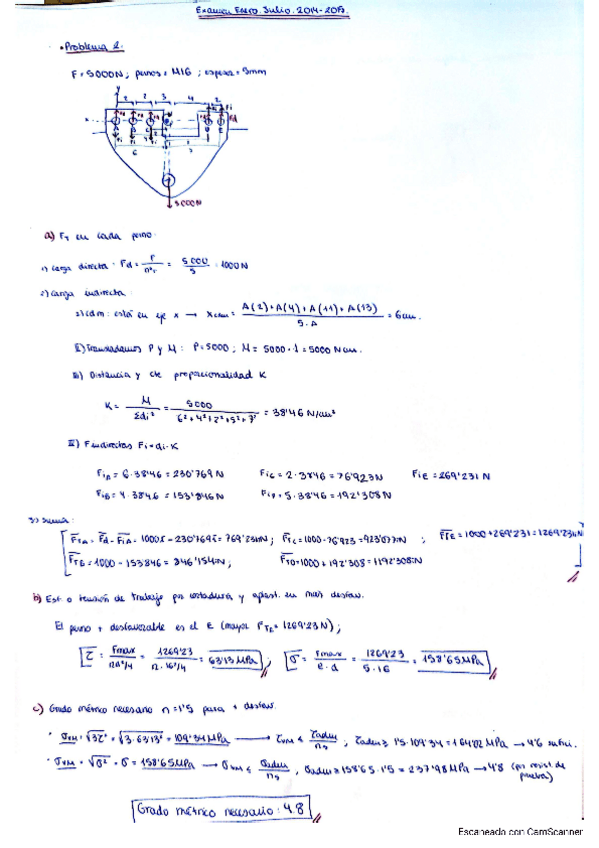 Examen Enero. Julio. 2014-2015.
• Problema 2.
F = 5000N; pernos = M16; espesor = 5mm
2 2 3 4 2
6
5000N
a) Fr en cada perno:
1) carga directa: Fd = F/nºr = 5000/5 = 1000N
2) carga indirecta:
I) cdm: está en eje x → Xcdm = (A(2)+A(4)+A(11)+A(13))/(5·A) = 6cm.
II) Trasladamos P y M: P=5000; M= 5000·1 = 5000 N·cm.
III) Distancia y cte proporcionalidad K
K = M/Σdi² = 5000/(6²+4²+2²+5²+7²) = 38'46 N/cm²
IV) F indirectas Fi=di·K
FiA = 6·38'46 = 230'769 N FiC = 2·38'46 = 76'923N FiE = 269'231 N
FiB = 4·38'46 = 153'846 N FiD = 5·38'46 = 192'308 N
3) suma:
FTA = Fd - FiA = 1000 - 230'769 = 769'231N; FTC = 1000-76'923 = 923'077N; FTE = 1000+269'231 = 1269'231N
FTB = 1000 - 153'846 = 846'154N; FTD = 1000 + 192'308 = 1192'308N
b) Est. o tensión de trabajo por cortadura y aplast. en más desfav.
El perno + desfavorable es el E (mayor FTE = 1269'23 N);
τ = Fmax/(πd²/4) = 1269'23/(π·16²/4) = 6'313 MPa; σ = Fmax/(e·d) = 1269'23/(5·16) = 15'865 MPa
c) Grado métrico necesario n=1'5 para + desfav.
· σVM = √3τ² = √3·6'313² = 10'934 MPa → σVM ≤ σadm/ns; σadm ≥ 1'5·10'934 = 16'402 MPa → 4'6 sufic.
· σVM = √σ² = σ = 15'865 MPa → σVM ≤ σadm/ns, σadm ≥ 15'865·1'5 = 23'798 MPa → 4'8 (por resist. de prueba)
Grado métrico necesario: 4.8
Escaneado con CamScanner